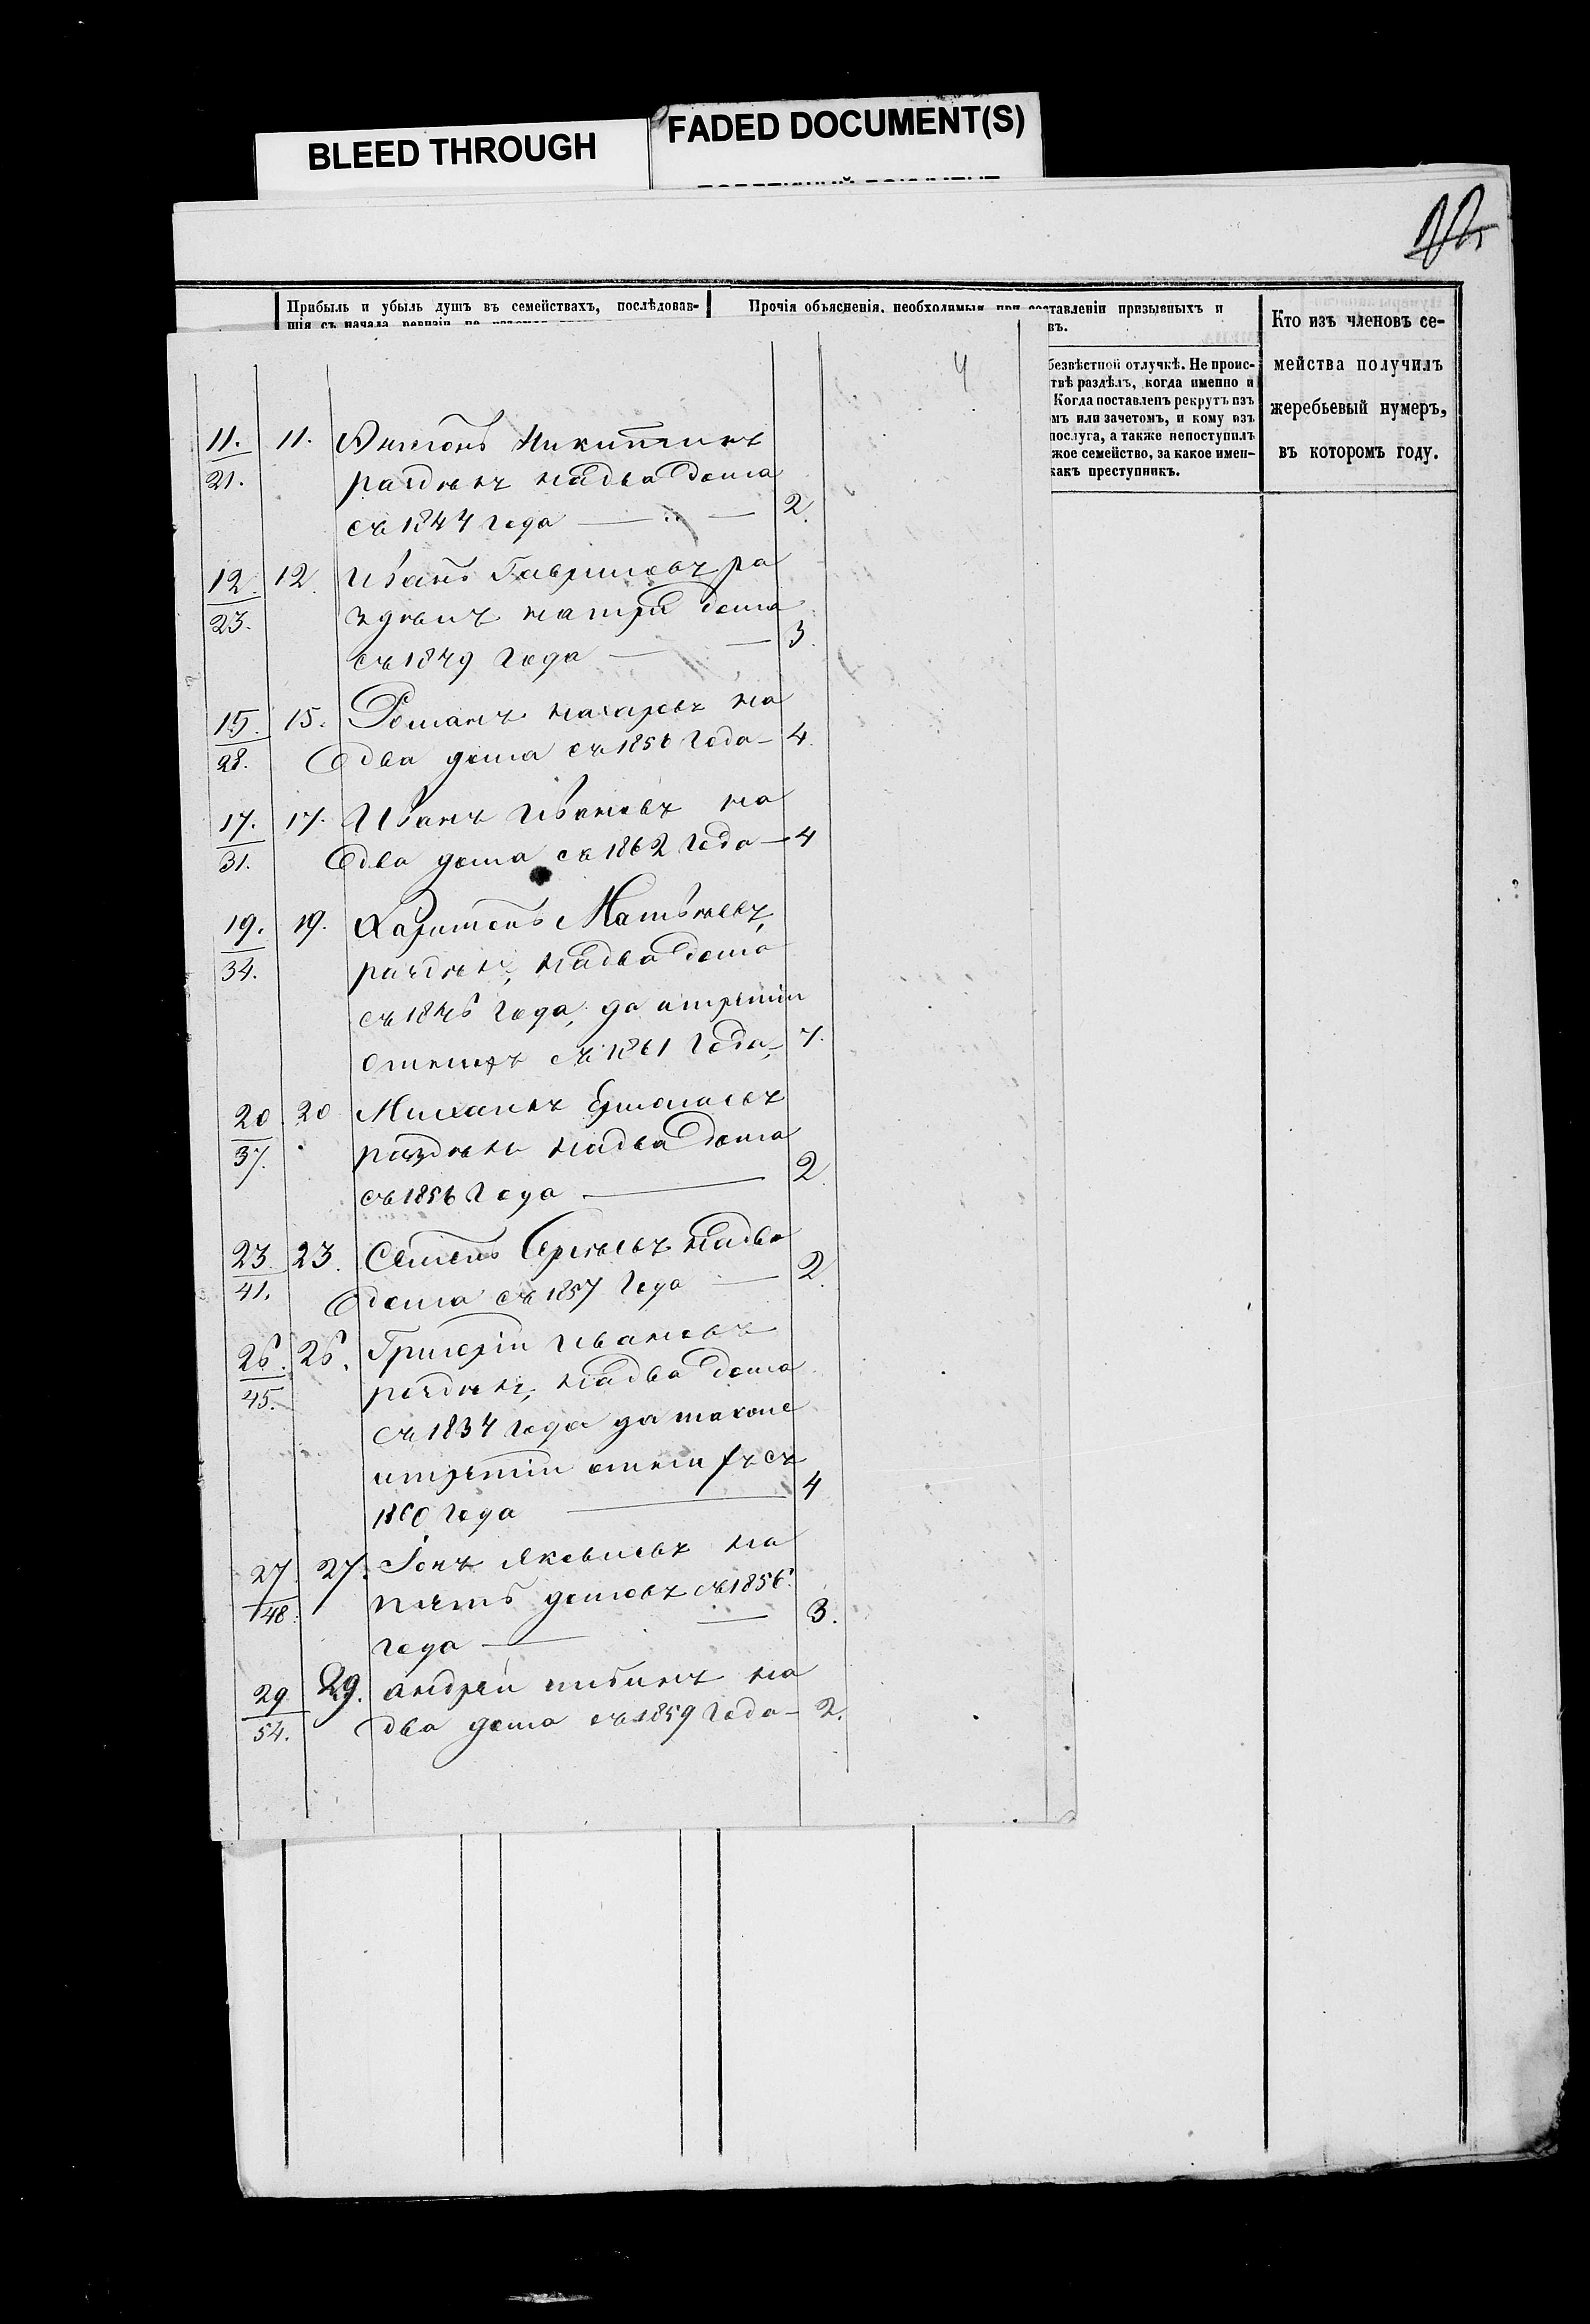 BLEED THROUGH
FADED DOCUMENT(S)
Прибыль и убыль душъ въ семействахъ, послѣдовав-
шія съ начала ревизіи
Прочія объясненія, необходимыя при составленіи призывныхъ и
въ.
безвѣстной отлучкѣ. Не проис-
твѣ раздѣлъ, когда именно и
Когда поставленъ рекрутъ изъ
мъ или зачетомъ, и кому изъ
послуга, а также непоступилъ
жое семейство, за какое имен-
какъ преступникъ.
Кто изъ членовъ се-
мейства получилъ
жеребьевый нумеръ,
въ которомъ году.
4
11. 11. Антонъ Никитинъ
21. раздѣлъ на два дома
съ 1844 года 2.
12. 12. Иванъ Гавриловъ ра
23. здѣлъ на три дома
съ 1849 года 3.
15. 15. Романъ Макаровъ на
28. два дома съ 1856 года 4.
17. 17. Иванъ Ивановъ на
31. два дома съ 1862 года 4
19. 19. Харитонъ Матвѣевъ,
34. раздѣлъ, на два дома
съ 1846 года, да итретіи
съ 1861 года,
20 20 Михаилъ Ермолаевъ
37. раздѣлъ на два дома
съ 1856 года 2.
23. 23. Семенъ Сергѣевъ на два
41. дома съ 1857 года 2.
26. 26. Григоріи Ивановъ
45. раздѣлъ, на два дома
съ 1834 года да также
итретіи съ
1860 года 4
27. 27. Іонъ Яковлевъ на
48. пять домовъ съ 1856.
года 3.
29 29. Андреи на
54. два дома съ 1859 года 2.